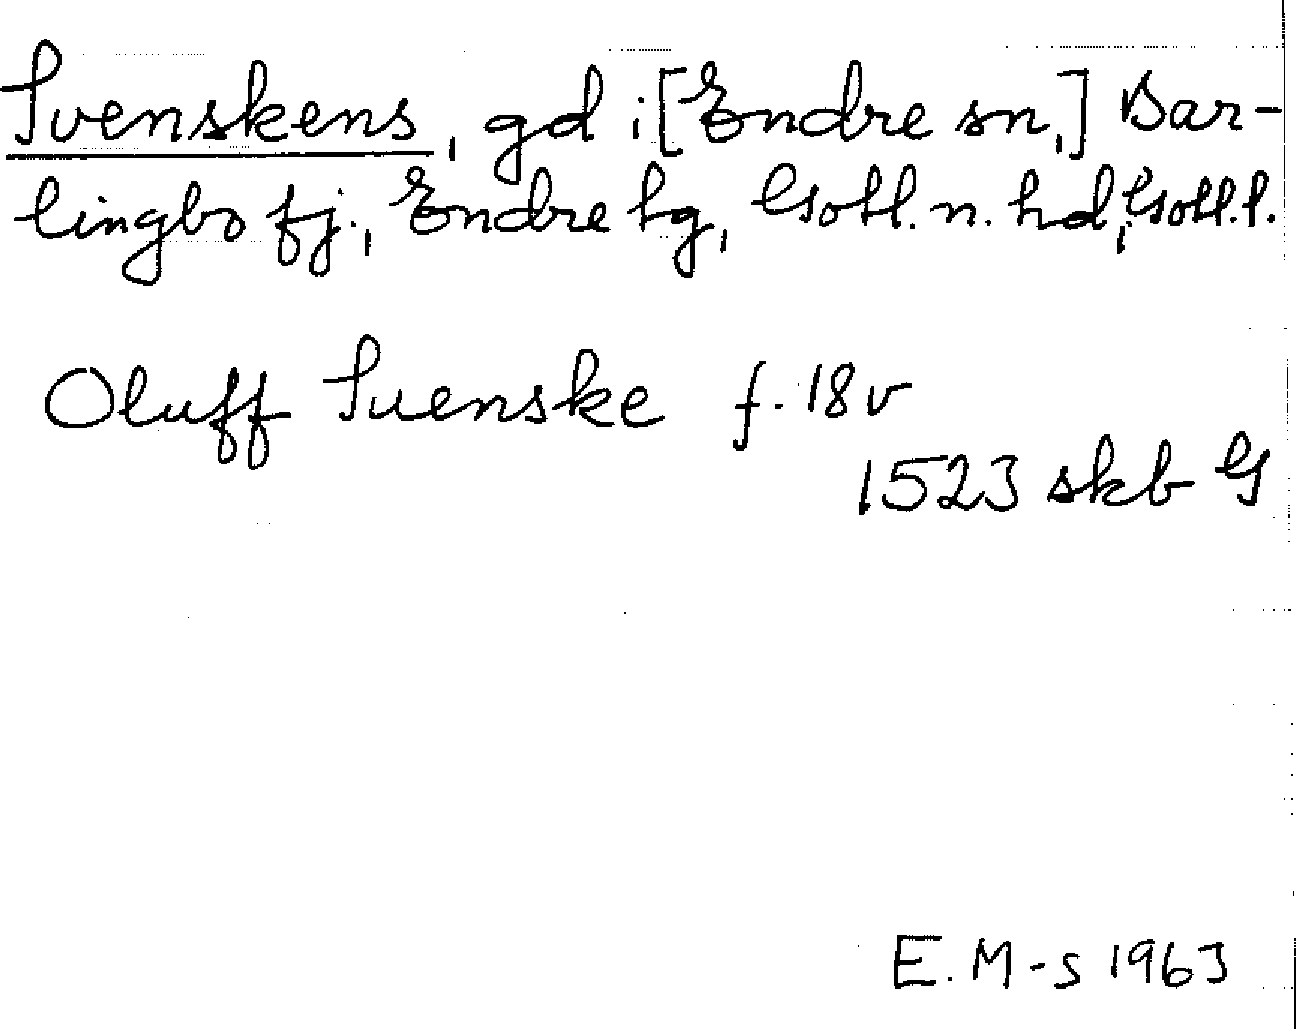 Svenskens, gd i [Endre sn,] Bar-
lingbo fj., Endre tg, Gotl. n. hd, Gotl. l.
Oluff Suenske f. 18 v
1523 skb G
E. M-s 1963